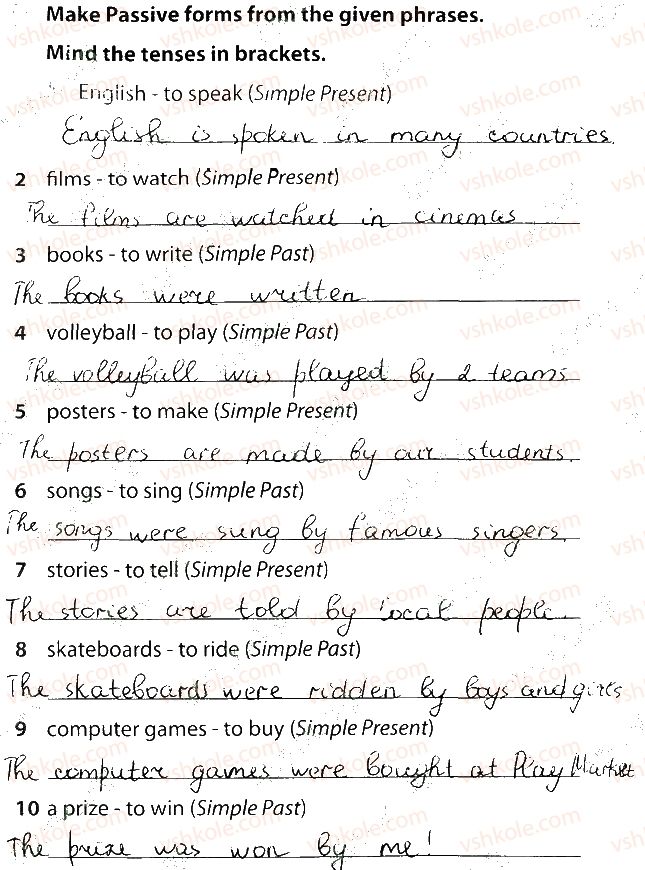 Make Passive forms from the given phrases.
Mind the tenses in brackets.
English - to speak (Simple Present)
English is spoken in many countries.
2 films - to watch (Simple Present)
The films are watched in cinemas
3 books - to write (Simple Past)
The books were written
4 volleyball - to play (Simple Past)
The volleyball was played by 2 teams
5 posters - to make (Simple Present)
The posters are made by our students.
6 songs - to sing (Simple Past)
The songs were sung by famous singers.
7 stories - to tell (Simple Present)
The stories are told by local people.
8 skateboards - to ride (Simple Past)
The skateboards were ridden by boys and girls
9 computer games - to buy (Simple Present)
The computer games were bought at Play Market
10 a prize - to win (Simple Past)
The prize was won by me!